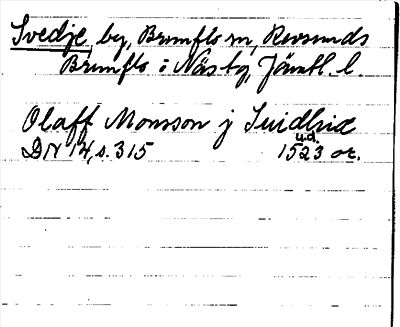 Svedje, by, Brunflo sn, Revsunds
Brunflo o Näs tg, Jämtl. l.
Olaff Monsson j Suidhie
u.d.
DN 14, s. 315 1523 or.